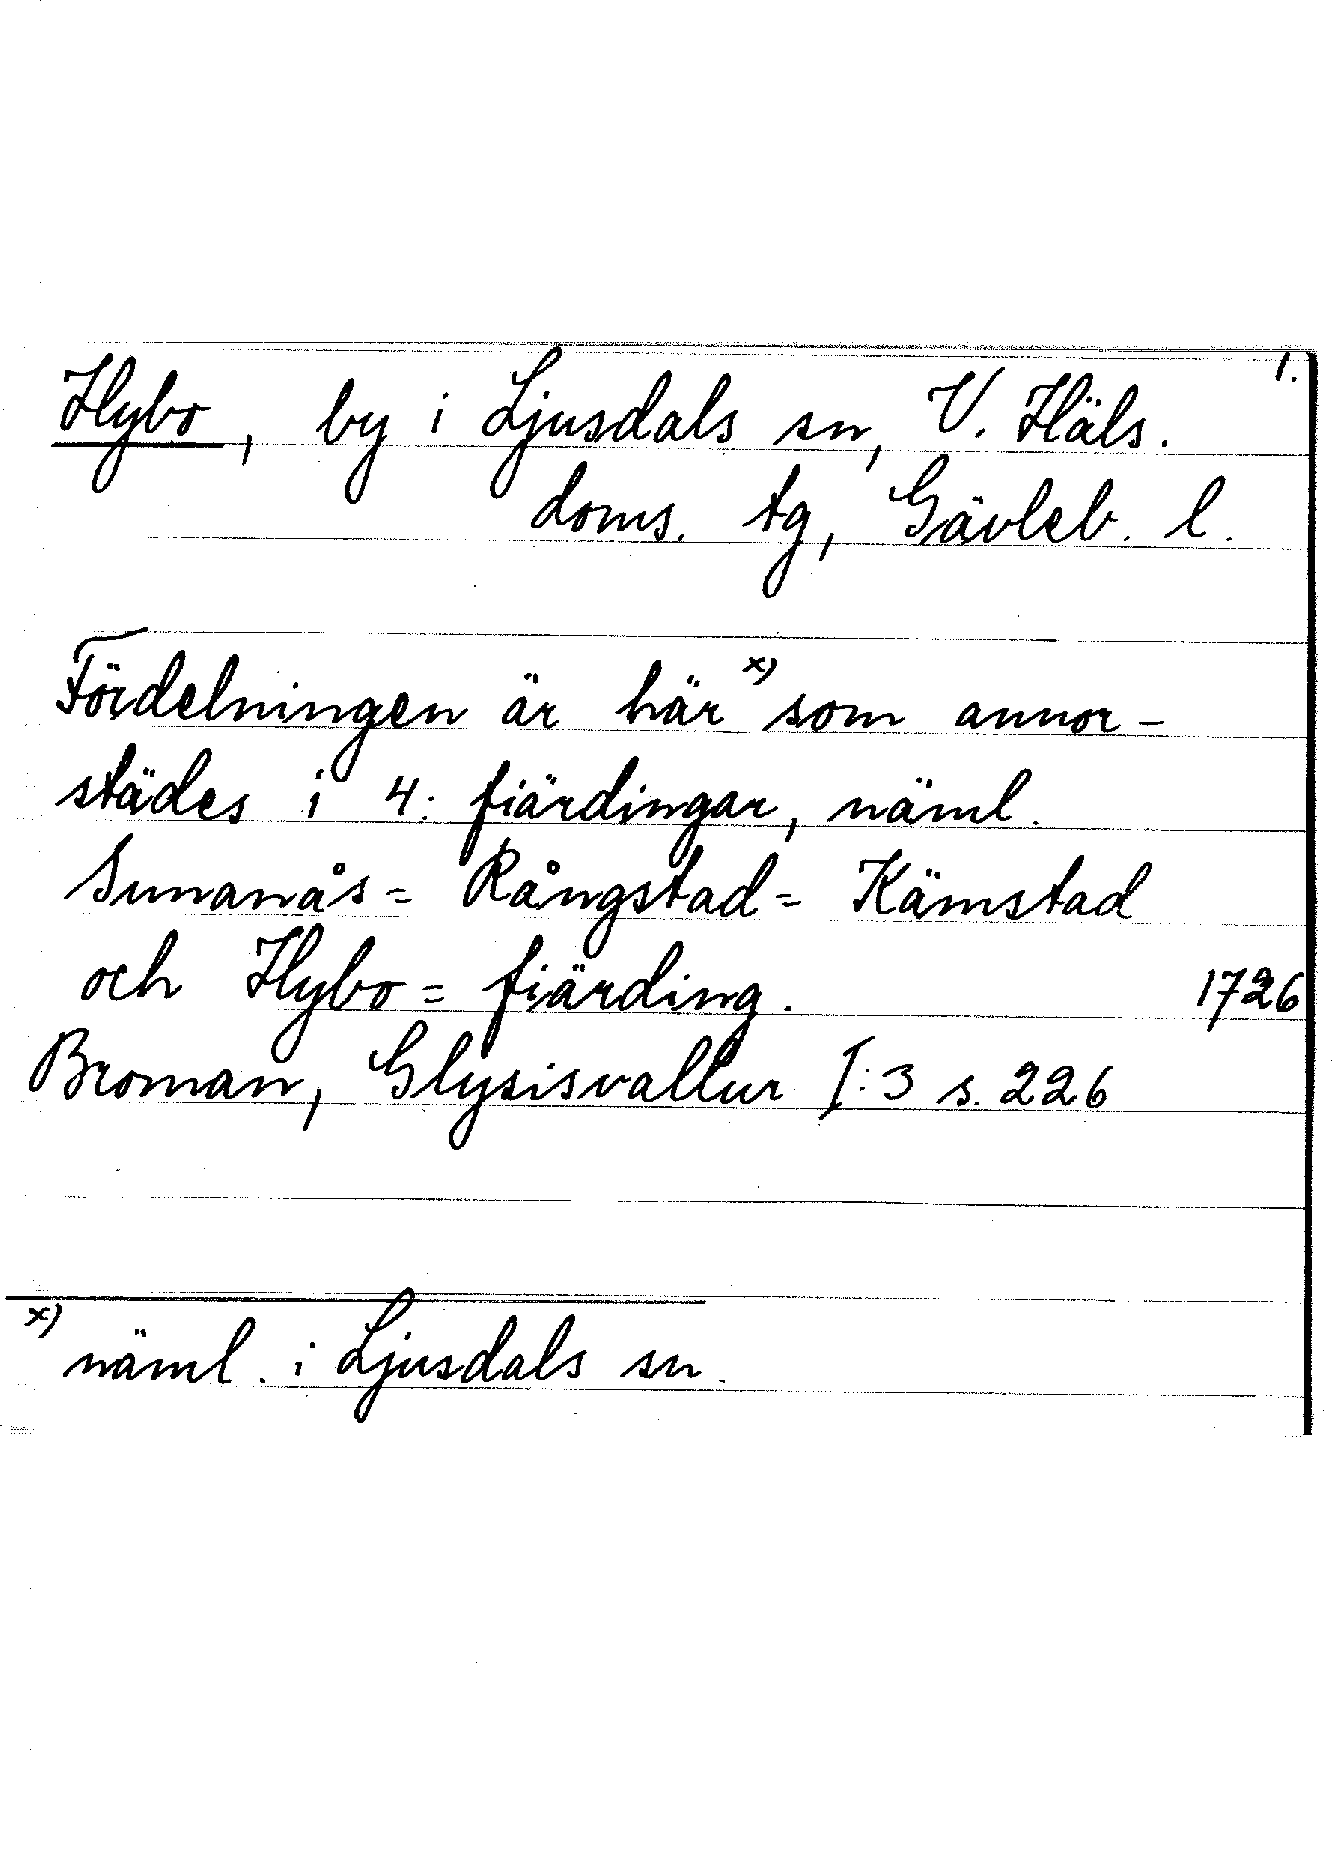 1.
Hybo, by i Ljusdals sn, V. Häls.
doms. tg, Gävleb. l.
Fördelningen är här x) som annor-
städes i 4: fiärdingar, näml.
Sunanås= Rångstad= Kämstad
och Hybo= fiärding. 1726
Broman, Glysisvallur I:3 s. 226
x) näml. i Ljusdals sn.